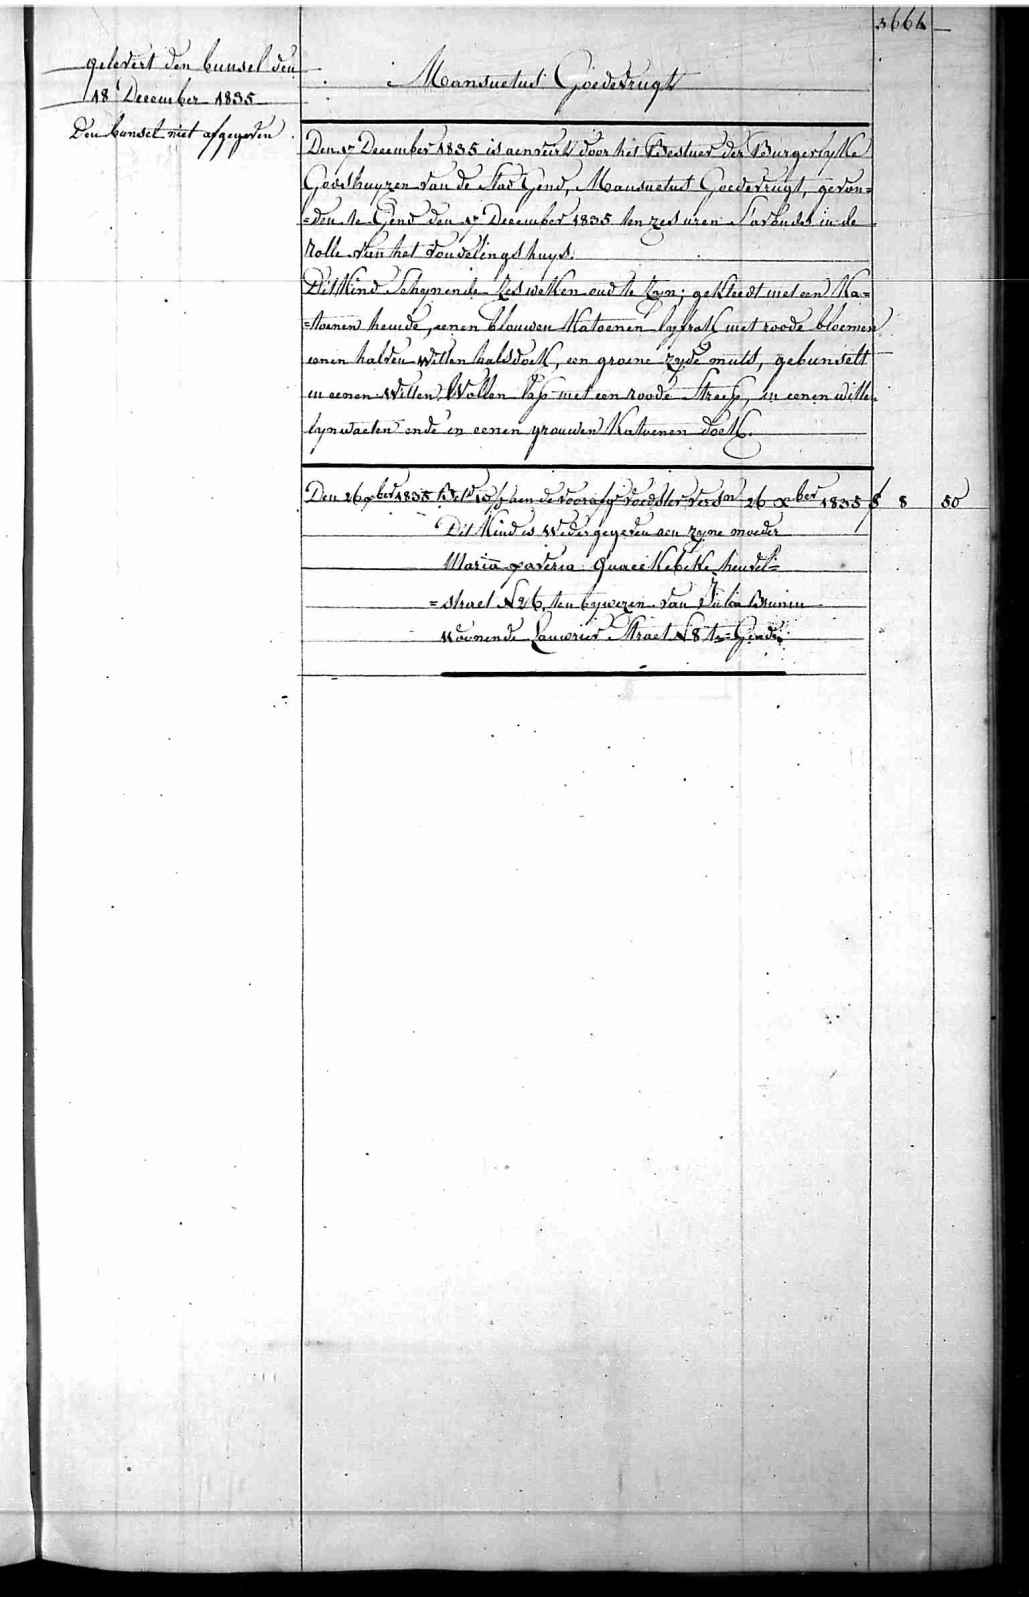 3664
gelevert den bunsel den
18 December 1835
Den bunsel niet afgegeven
Mansuetus Goedevrugt
Den 17 December 1835 is aenveirt door het Bestuer der Burgerlyke
Godshuyzen van de Stad Gend, Mansuetus Goedevrugt, gevon=
=den te Gend den 17 December 1835 ten zes uren S'avonds in de
rolle van het vondelingshuys.
Dit Kind Schynende zes weken oud te zyn; gekleedt met een Ka=
=toenen hemde, eenen blauwen Katoenen lyfrok met roode bloemen
eenen halven witten halsdoek, een groene zyde muts, gebunselt
in eenen Witten Wollen lap met een roode Streep, in eenen witten
lynwaeten ende in eenen grauwen Katoenen doek.
Den 26 xber 1835 aen de voorafg. voedster 26 xber 1835 8 50
Dit Kind is Wedergegeven aen zyne moeder
Maria xaveria Quaeckebeke heuvel=
=straet N 26, ten bywezen van Julia Brunin
woonende Lauwrier Straet N 8 te Gend.